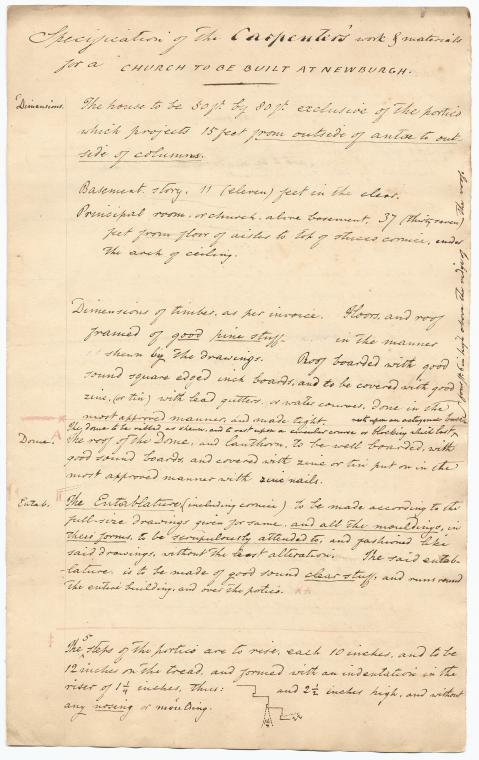 Specification of the Carpenter's work & materials
for a CHURCH TO BE BUILT AT NEWBURGH.
Dimensions. The house to be 50 ft. by 80 ft. exclusive of the portico
which projects 15 feet from outside of antae to out-
side of columns.
Basement story, 11 (eleven) feet in the clear.
Principal room, or church, above basement, 37 (thirty seven)
feet from floor of aisles to top of stucco cornice, under
the arch of ceiling.
Dimensions of timber, as per invoice. Floors, and roof
framed of good pine stuff in the manner
shewn by the drawings. Roof boarded with good
sound square edged inch boards, and to be covered with good
zinc, (or tin) with lead gutters, or water courses, done in the
most approved manner, and made tight.
The dome to be ribbed as shewn, and to rest upon a circular course or blocking which last
rest upon an octagonal
high above the ridge of the roof.
Dome. The roof of the Dome, and lanthorn, to be well boarded, with
good sound boards, and covered with zinc or tin put on in the
most approved manner with zinc nails.
Entab. The Entablature (including cornice) to be made according to the
full-size drawings given for same, and all the mouldings, in
their forms, to be scrupulously attended to, and fashioned like
said drawings, without the least alteration. The said entab-
-lature is to be made of good sound clear stuff, and runs round
the entire building, and over the portico.
The 5 steps of the portico are to rise, each 10 inches, and to be
12 inches on the tread, and formed with an indentation in the
riser of 1 1/4 inches, thus: and 2 1/2 inches high, and without
any nosing or moulding.